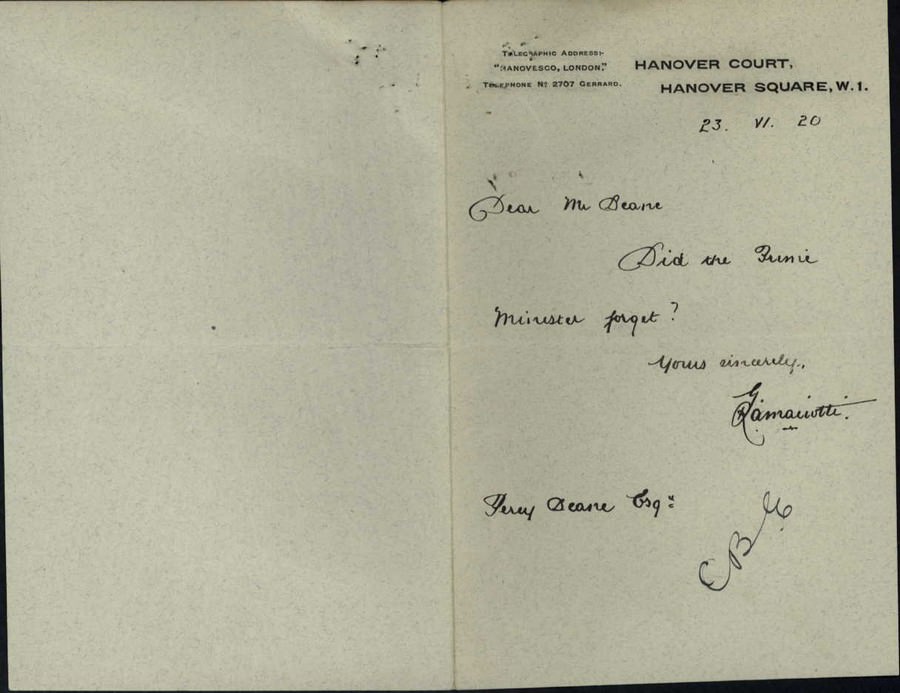 TELEGRAPHIC ADDRESS:-
"HANOVESCO, LONDON."
TELEPHONE No 2707 GERRARD.
HANOVER COURT,
HANOVER SQUARE, W.1.
23. VI. 20
Dear Mr Deane
Did the Prime
Minister forget?
Yours sincerely,
G Ramaciotti.
Percy Deane Esq:
CBE